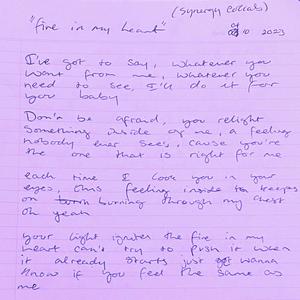 (Synergy collab)
"fire in my heart"
10 2023
I've got to say, whatever you
want from me, whatever you
need to see, I'll do it for
you baby
Don't be afraid, you relight
something inside of me, a feeling
nobody ever sees, cause you're
the one that is right for me
each time I look you in your
eyes, this feeling inside keeps
on burning through my chest
oh yeah
your light ignites the fire in my
heart can't try to push it when
it already starts just wanna
know if you feel the same as
me